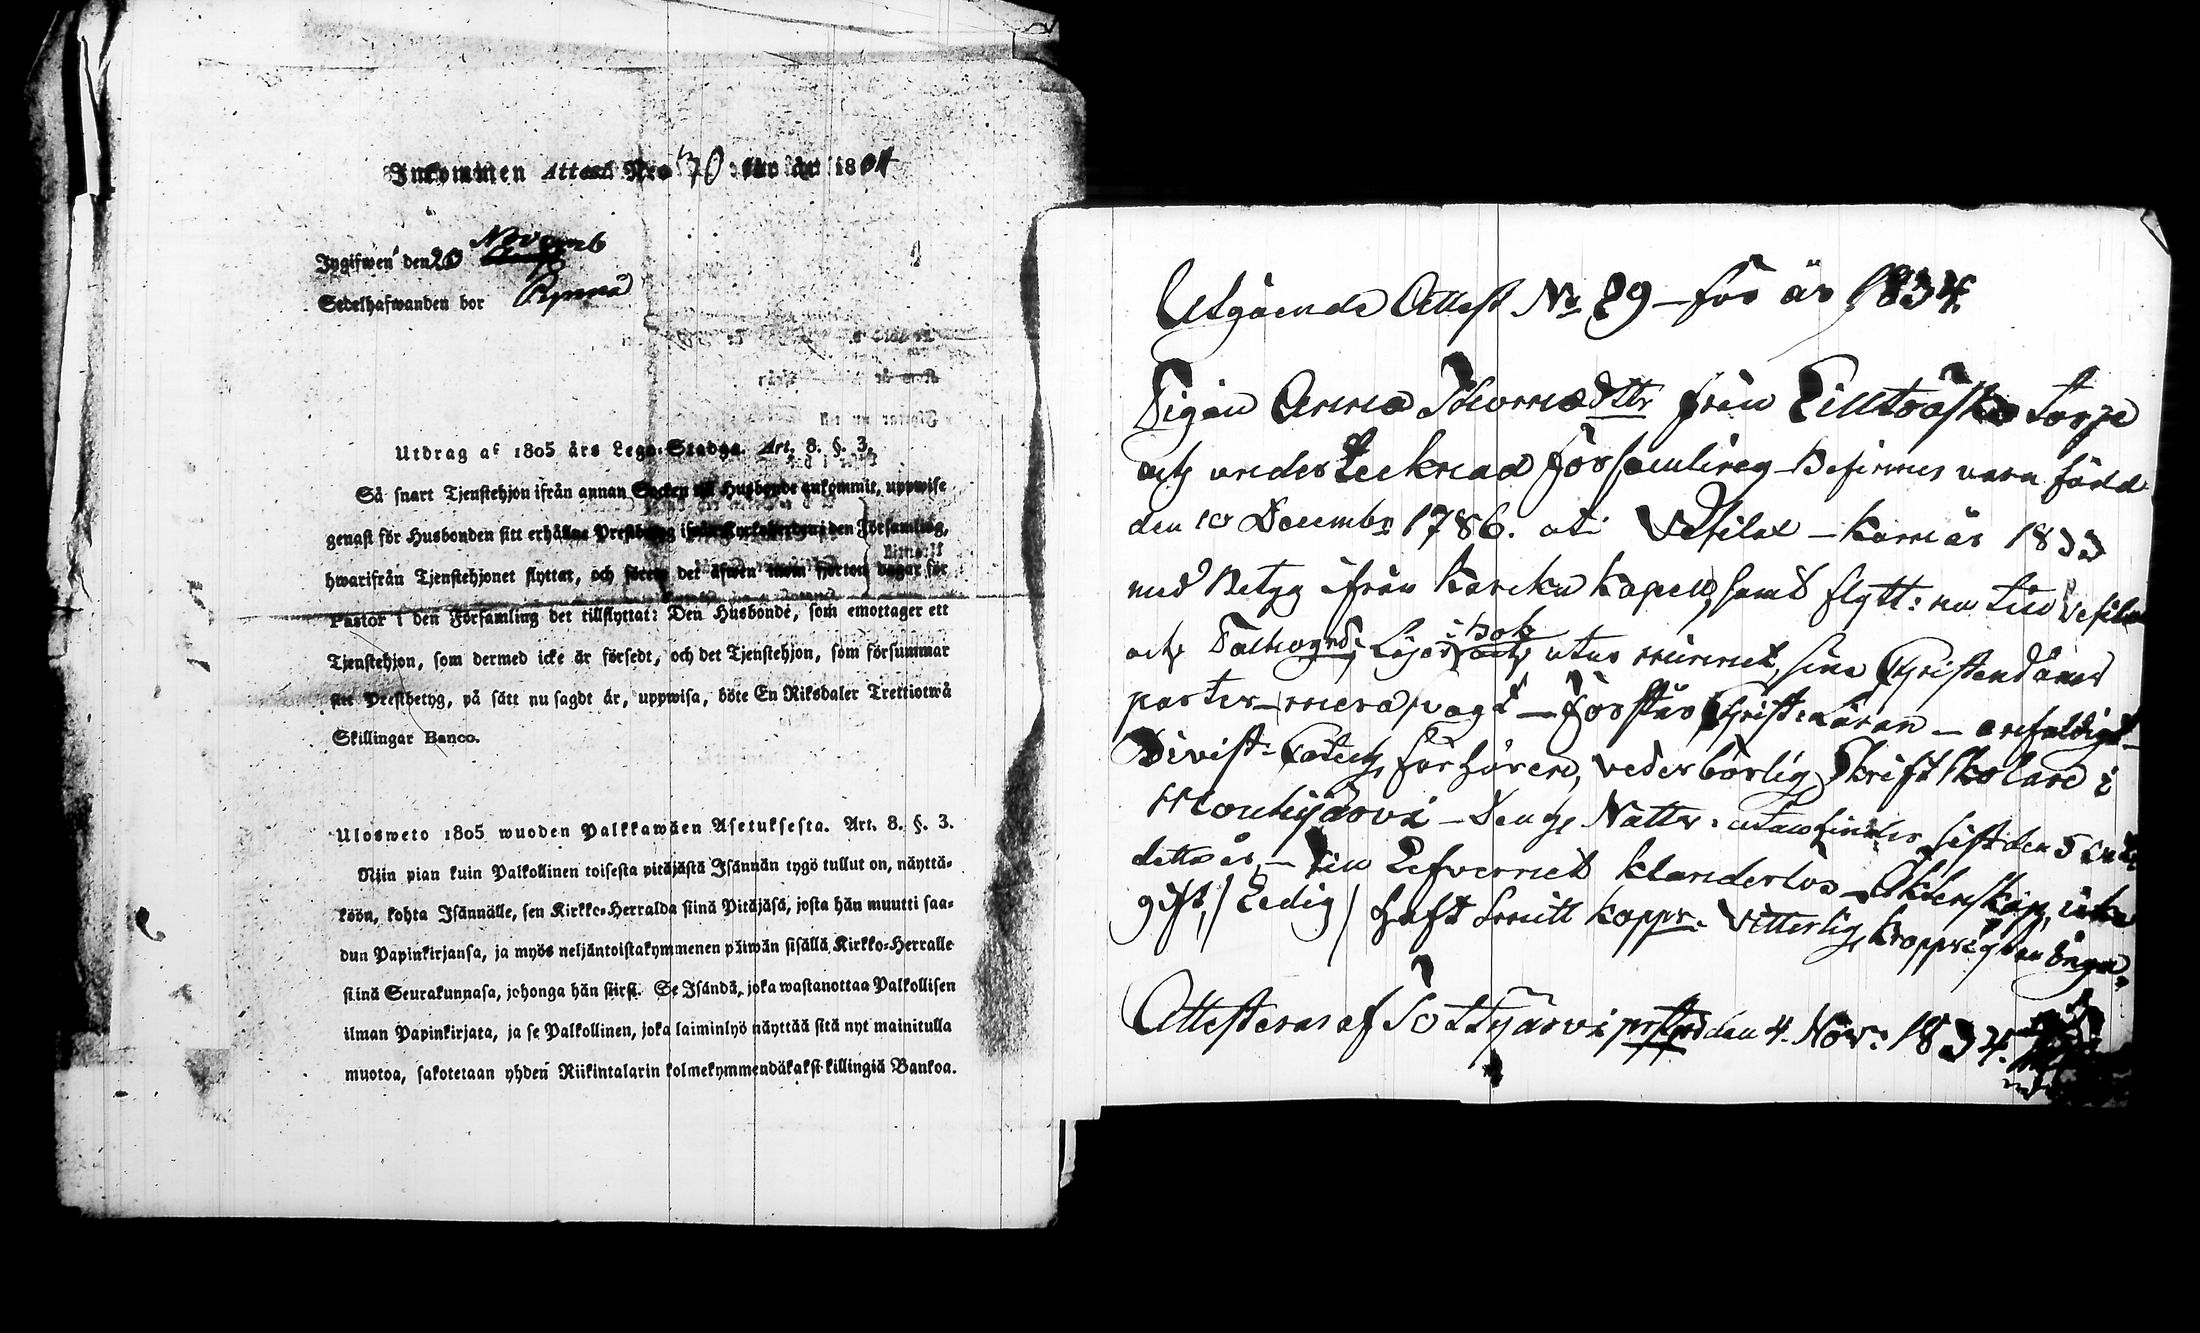 Inkommen Attest Nro 70 för år 1804
Ingifwen den 20 Novemb
Sedelhafwanden bor
Utdrag af 1805 års Lego-Stadga. Art. 8. §. 3.
Så snart Tjenstehjon ifrån annan Socken til Husbonde ankommit, uppwise
genast för Husbonden sitt erhållne Prestbetyg den Församling,
hwarifrån Tjenstehjonet flyttat, och förete det äfwen inom fjorton dagar för
Pastor i den Församling det tillflyttat: Den Husbonde, som emottager ett
Tjenstehjon, som dermed icke är försedt, och det Tjenstehjon, som försummar
sitt Prestbetyg, på sätt nu sagdt är, uppwisa, böte En Riksdaler Trettiotwå
Skillingar Banco.
Ulosweto 1805 wuoden Palkkawäen Asetuksesta. Art. 8. §. 3.
Niin pian kuin Palkollinen toisesta pitäjästä Isännän tygö tullut on, näyttä-
köön, kohta Isännälle, sen Kirkko-Herralda siinä Pitäjäsä, josta hän muutti saa-
dun Papinkirjansa, ja myös neljäntoistakymmenen päiwän sisällä Kirkko-Herralle
siinä Seurakunnasa, johonga hän siirsi. Se Isändä, joka wastanottaa Palkollisen
ilman Papinkirjata, ja se Palkollinen, joka laiminlyö näyttää sitä nyt mainitulla
muotoa, sakotetaan yhden Riikintalarin kolmekymmendäkaksi killingiä Bankoa.
Utgående Attest No 29 – för år 1834
Pigan Anna Thomædttr från torp
och underteeknad församling – Befinnes vara född
den 10 Decembr 1786. uti Vesilax – kom år 1833
med Betyg ifrån Karcku kapell, samt flytt: nu till Vesilax
och Läser i bok och utur minnet, sina Christendoms
parter – försvagt – förstår Christ: Läran – enfaldigt –
Bevist: Catech förhören, vederbörlig, Skriftskolare i
Mouhijärvi – Den H. Nattv. sist den 5
detta år, – till Lefvernet klanderlös – Äktenskap, icke
gift, / Ledig / haft Smitt koppr. Vitterlig
Attesteras af Sottjärvi den 4. Nov: 1834.